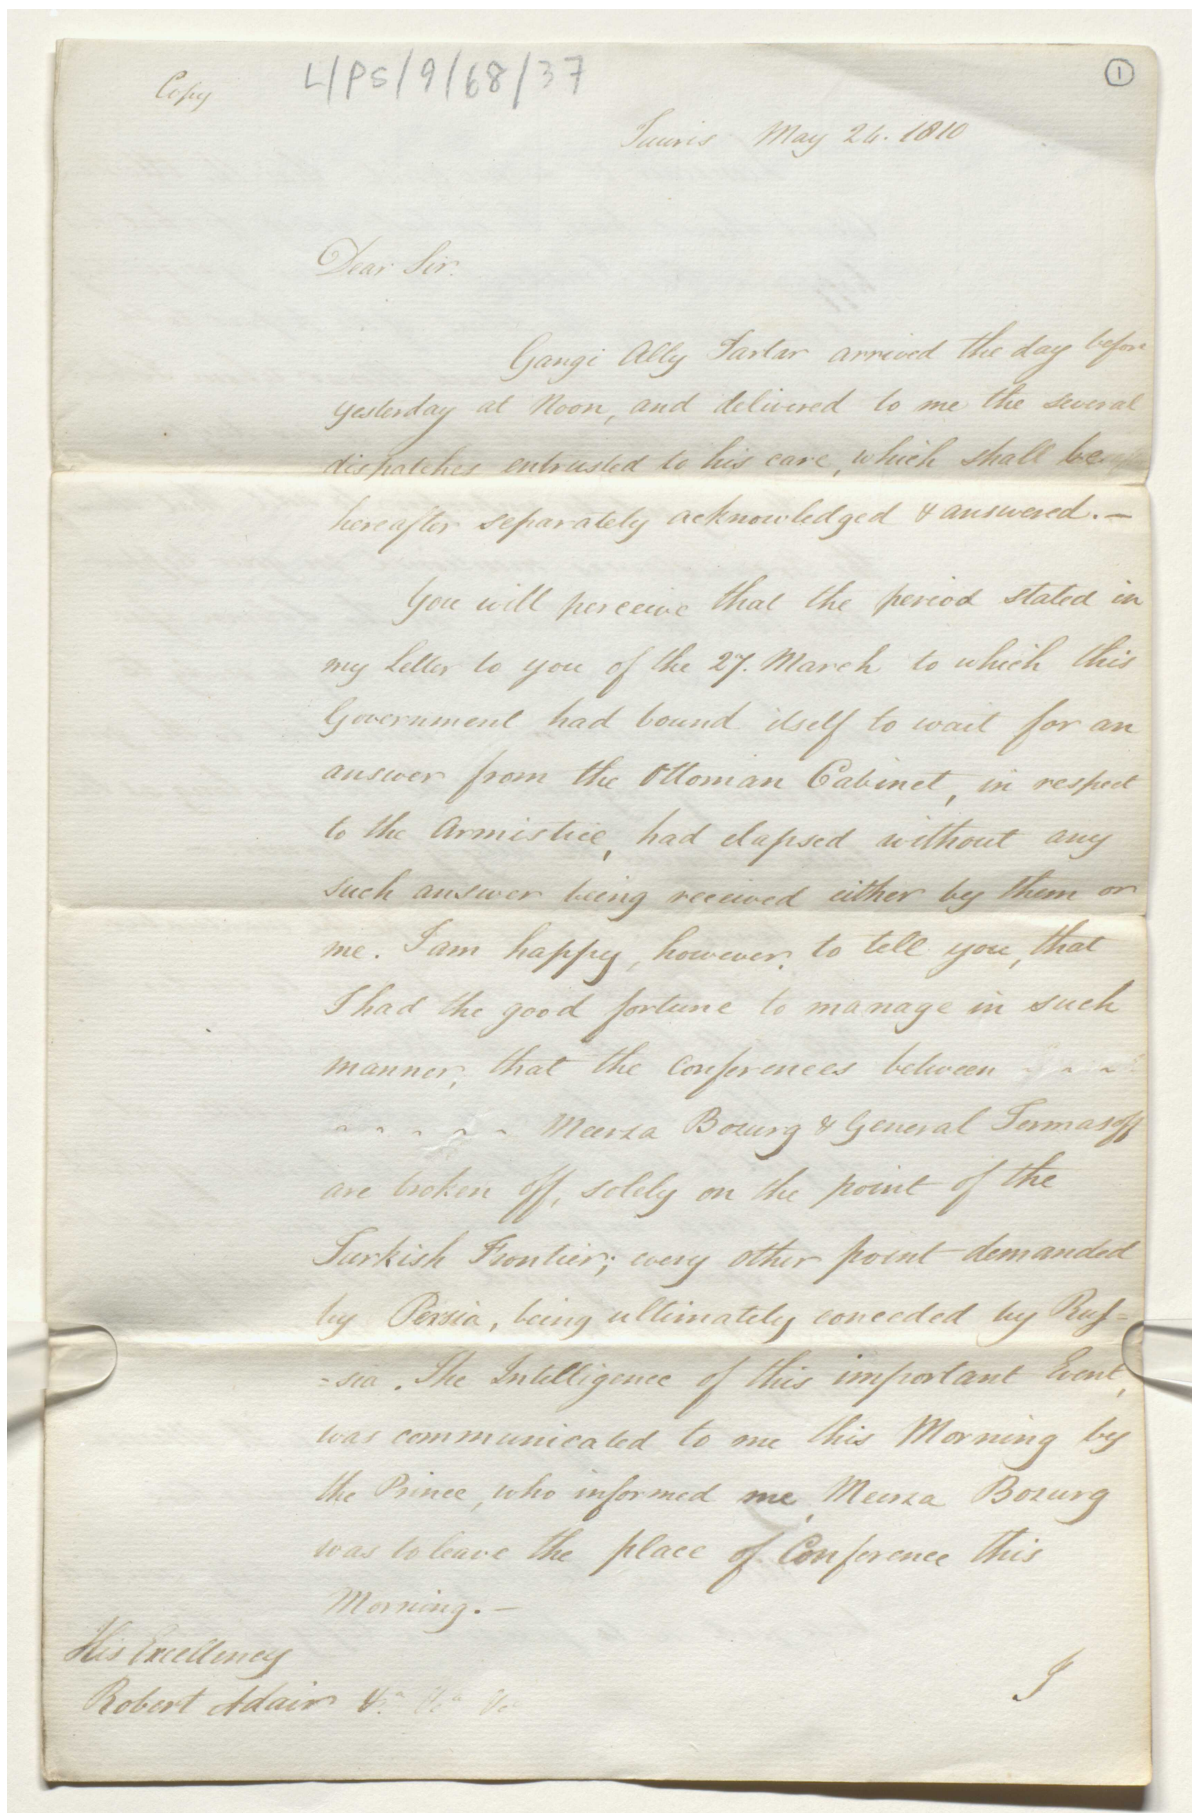 Copy
L/PS/9/68/37
1
Tauris May 24. 1810
Dear Sir.
Gangi Ally Tartar arrived the day before
yesterday at Noon, and delivered to me the several
dispatches entrusted to his care, which shall be
hereafter separately acknowledged & answered. —
You will perceive that the period stated in
my Letter to you of the 27. March to which this
Government had bound itself to wait for an
answer from the Ottoman Cabinet, in respect
to the Armistice, had elapsed without any
such answer being received either by them or
me. I am happy, however, to tell you, that
I had the good fortune to manage in such
manner, that the conferences between
Meerza Bozurg & General Tormasoff
are broken off, solely on the point of the
Turkish Frontier; every other point demanded
by Persia, being ultimately conceded by Rus=
=sia. The Intelligence of this important Event,
was communicated to me this Morning by
the Prince, who informed me, Meerza Bozurg
was to leave the place of Conference this
Morning. —
His Excellency
Robert Adair &c. &c. &c.
I